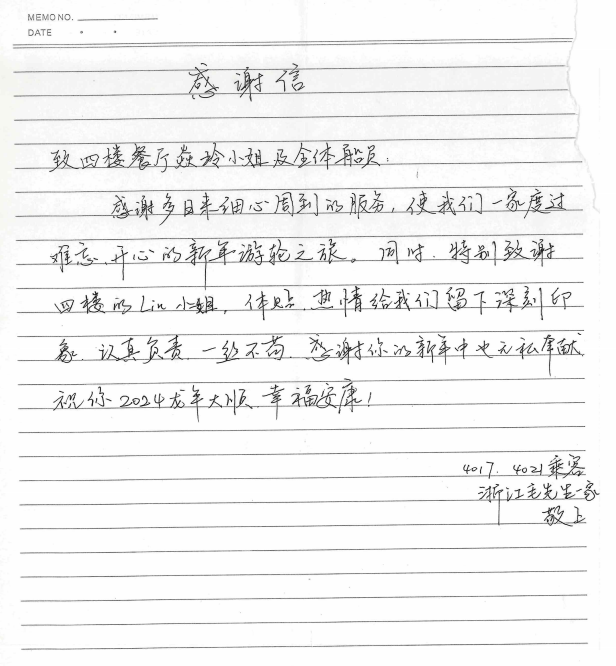 MEMO NO.
DATE
感谢信
致四楼餐厅焱玲小姐及全体船员：
感谢多日来细心周到的服务，使我们一家度过
难忘、开心的新年游轮之旅。同时，特别致谢
四楼的Lin小姐，体贴、热情给我们留下深刻印
象，认真负责，一丝不苟，感谢你的新年中也无私奉献，
祝你2024龙年大顺，幸福安康！
4017、4021乘客
浙江毛先生一家
敬上